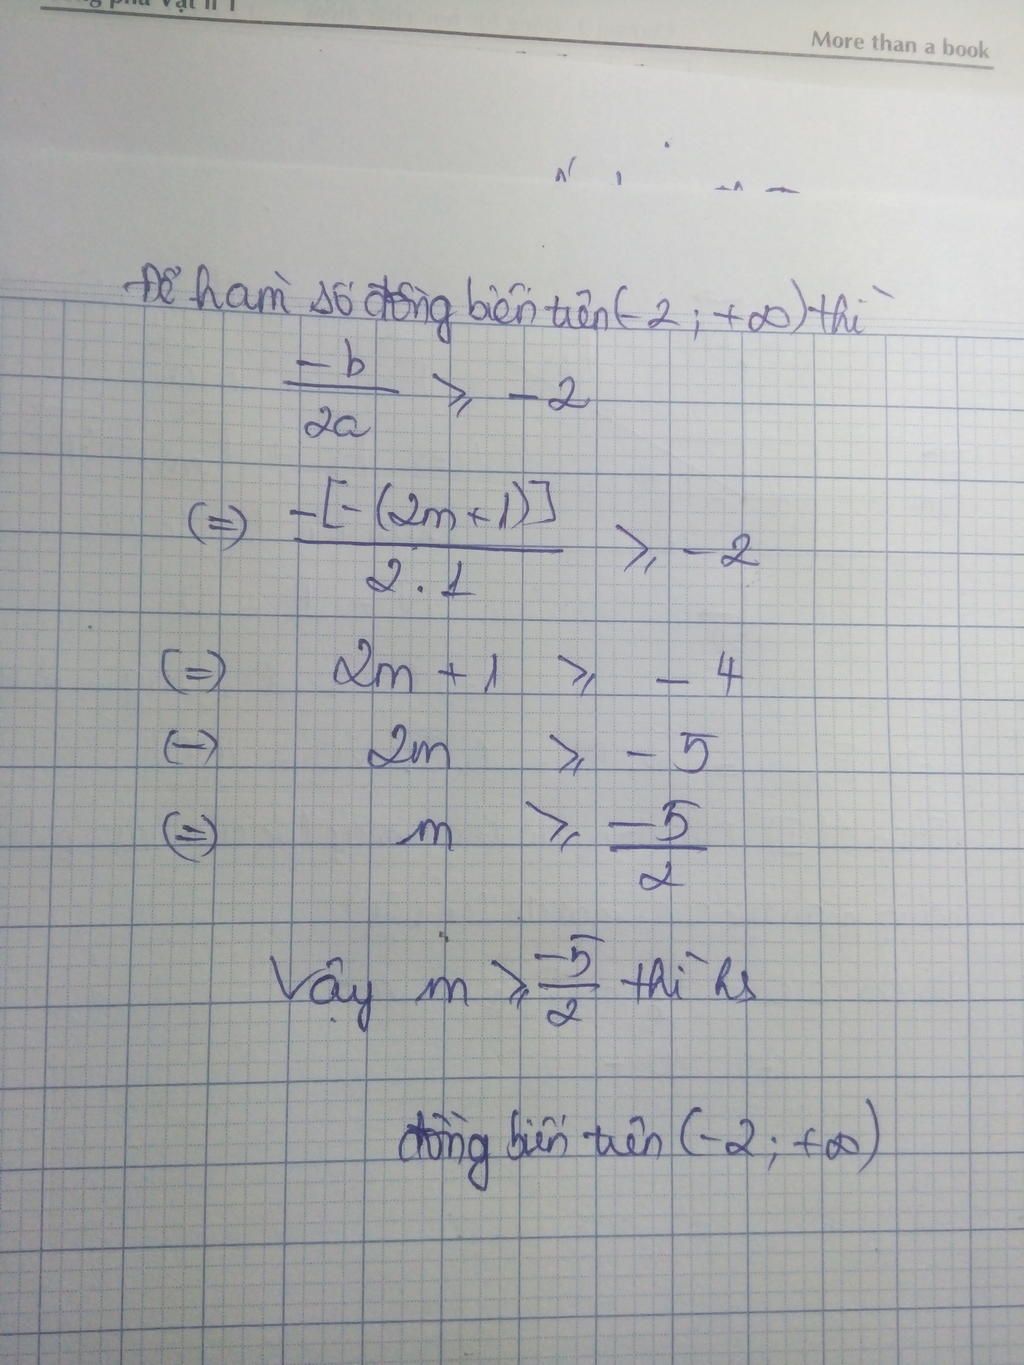 More than a book
Để hàm số đồng biến trên (-2 ; +∞) thì
-b
2a ⩾ -2
(=) -[-(2m+1)]
2.1 ⩾ -2
(=) 2m + 1 ⩾ -4
(=) 2m ⩾ -5
(=) m ⩾ -5
2
Vậy m ⩾ -5/2 thì hs
đồng biến trên (-2 ; +∞)